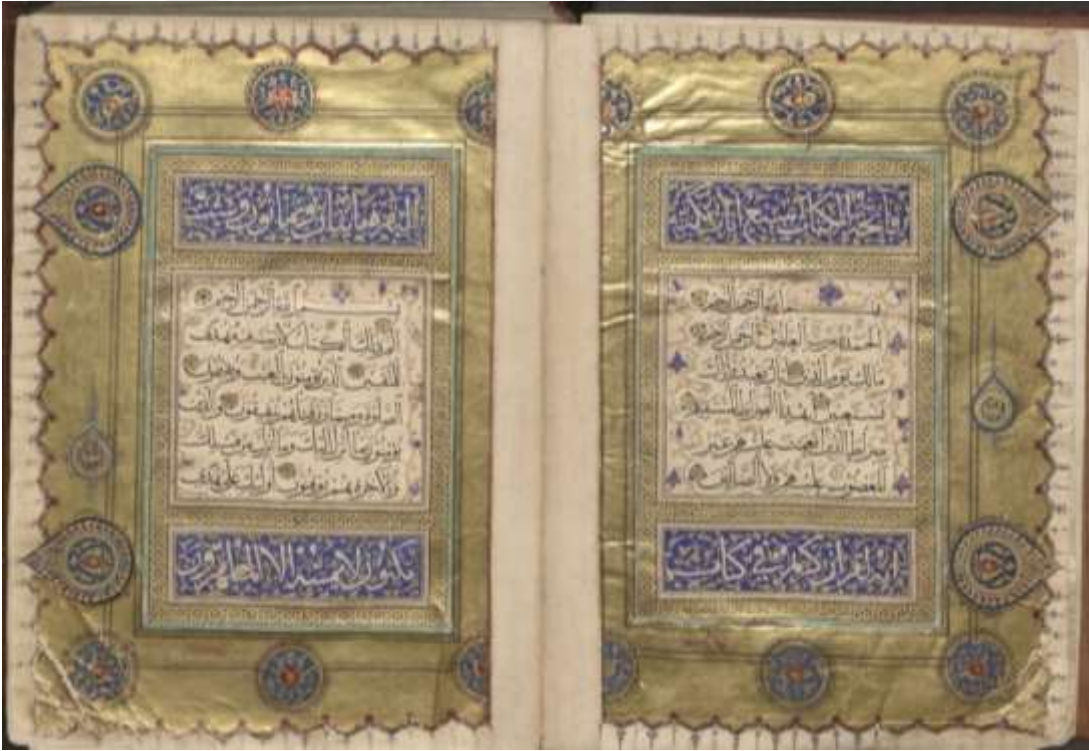 فاتحة الكتاب سبع آيات مكية
بسم الله الرحمن الرحيم
الحمد لله رب العالمين الرحمن الرحيم
مالك يوم الدين اياك نعبد واياك
نستعين اهدنا الصراط المستقيم
صراط الذين انعمت عليهم غير
المغضوب عليهم ولا الضالين
انه لقرآن كريم في كتاب
البقرة مائتان وثمانون وست
بسم الله الرحمن الرحيم
الم ذلك الكتاب لا ريب فيه هدى
للمتقين الذين يؤمنون بالغيب ويقيمون
الصلوة ومما رزقناهم ينفقون والذين
يؤمنون بما انزل اليك وما انزل من قبلك
وبالاخرة هم يوقنون اولئك على هدى
مكنون لا يمسه الا المطهرون